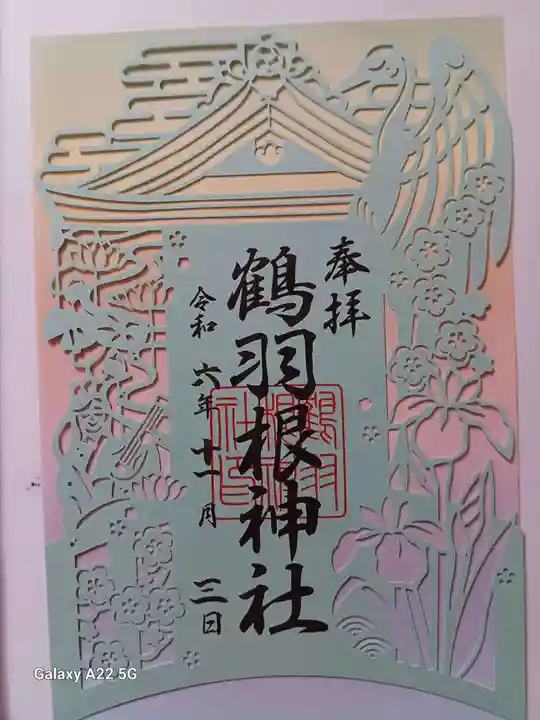 奉拝
鶴羽根神社
令和六年十一月三日
Galaxy A22 5G